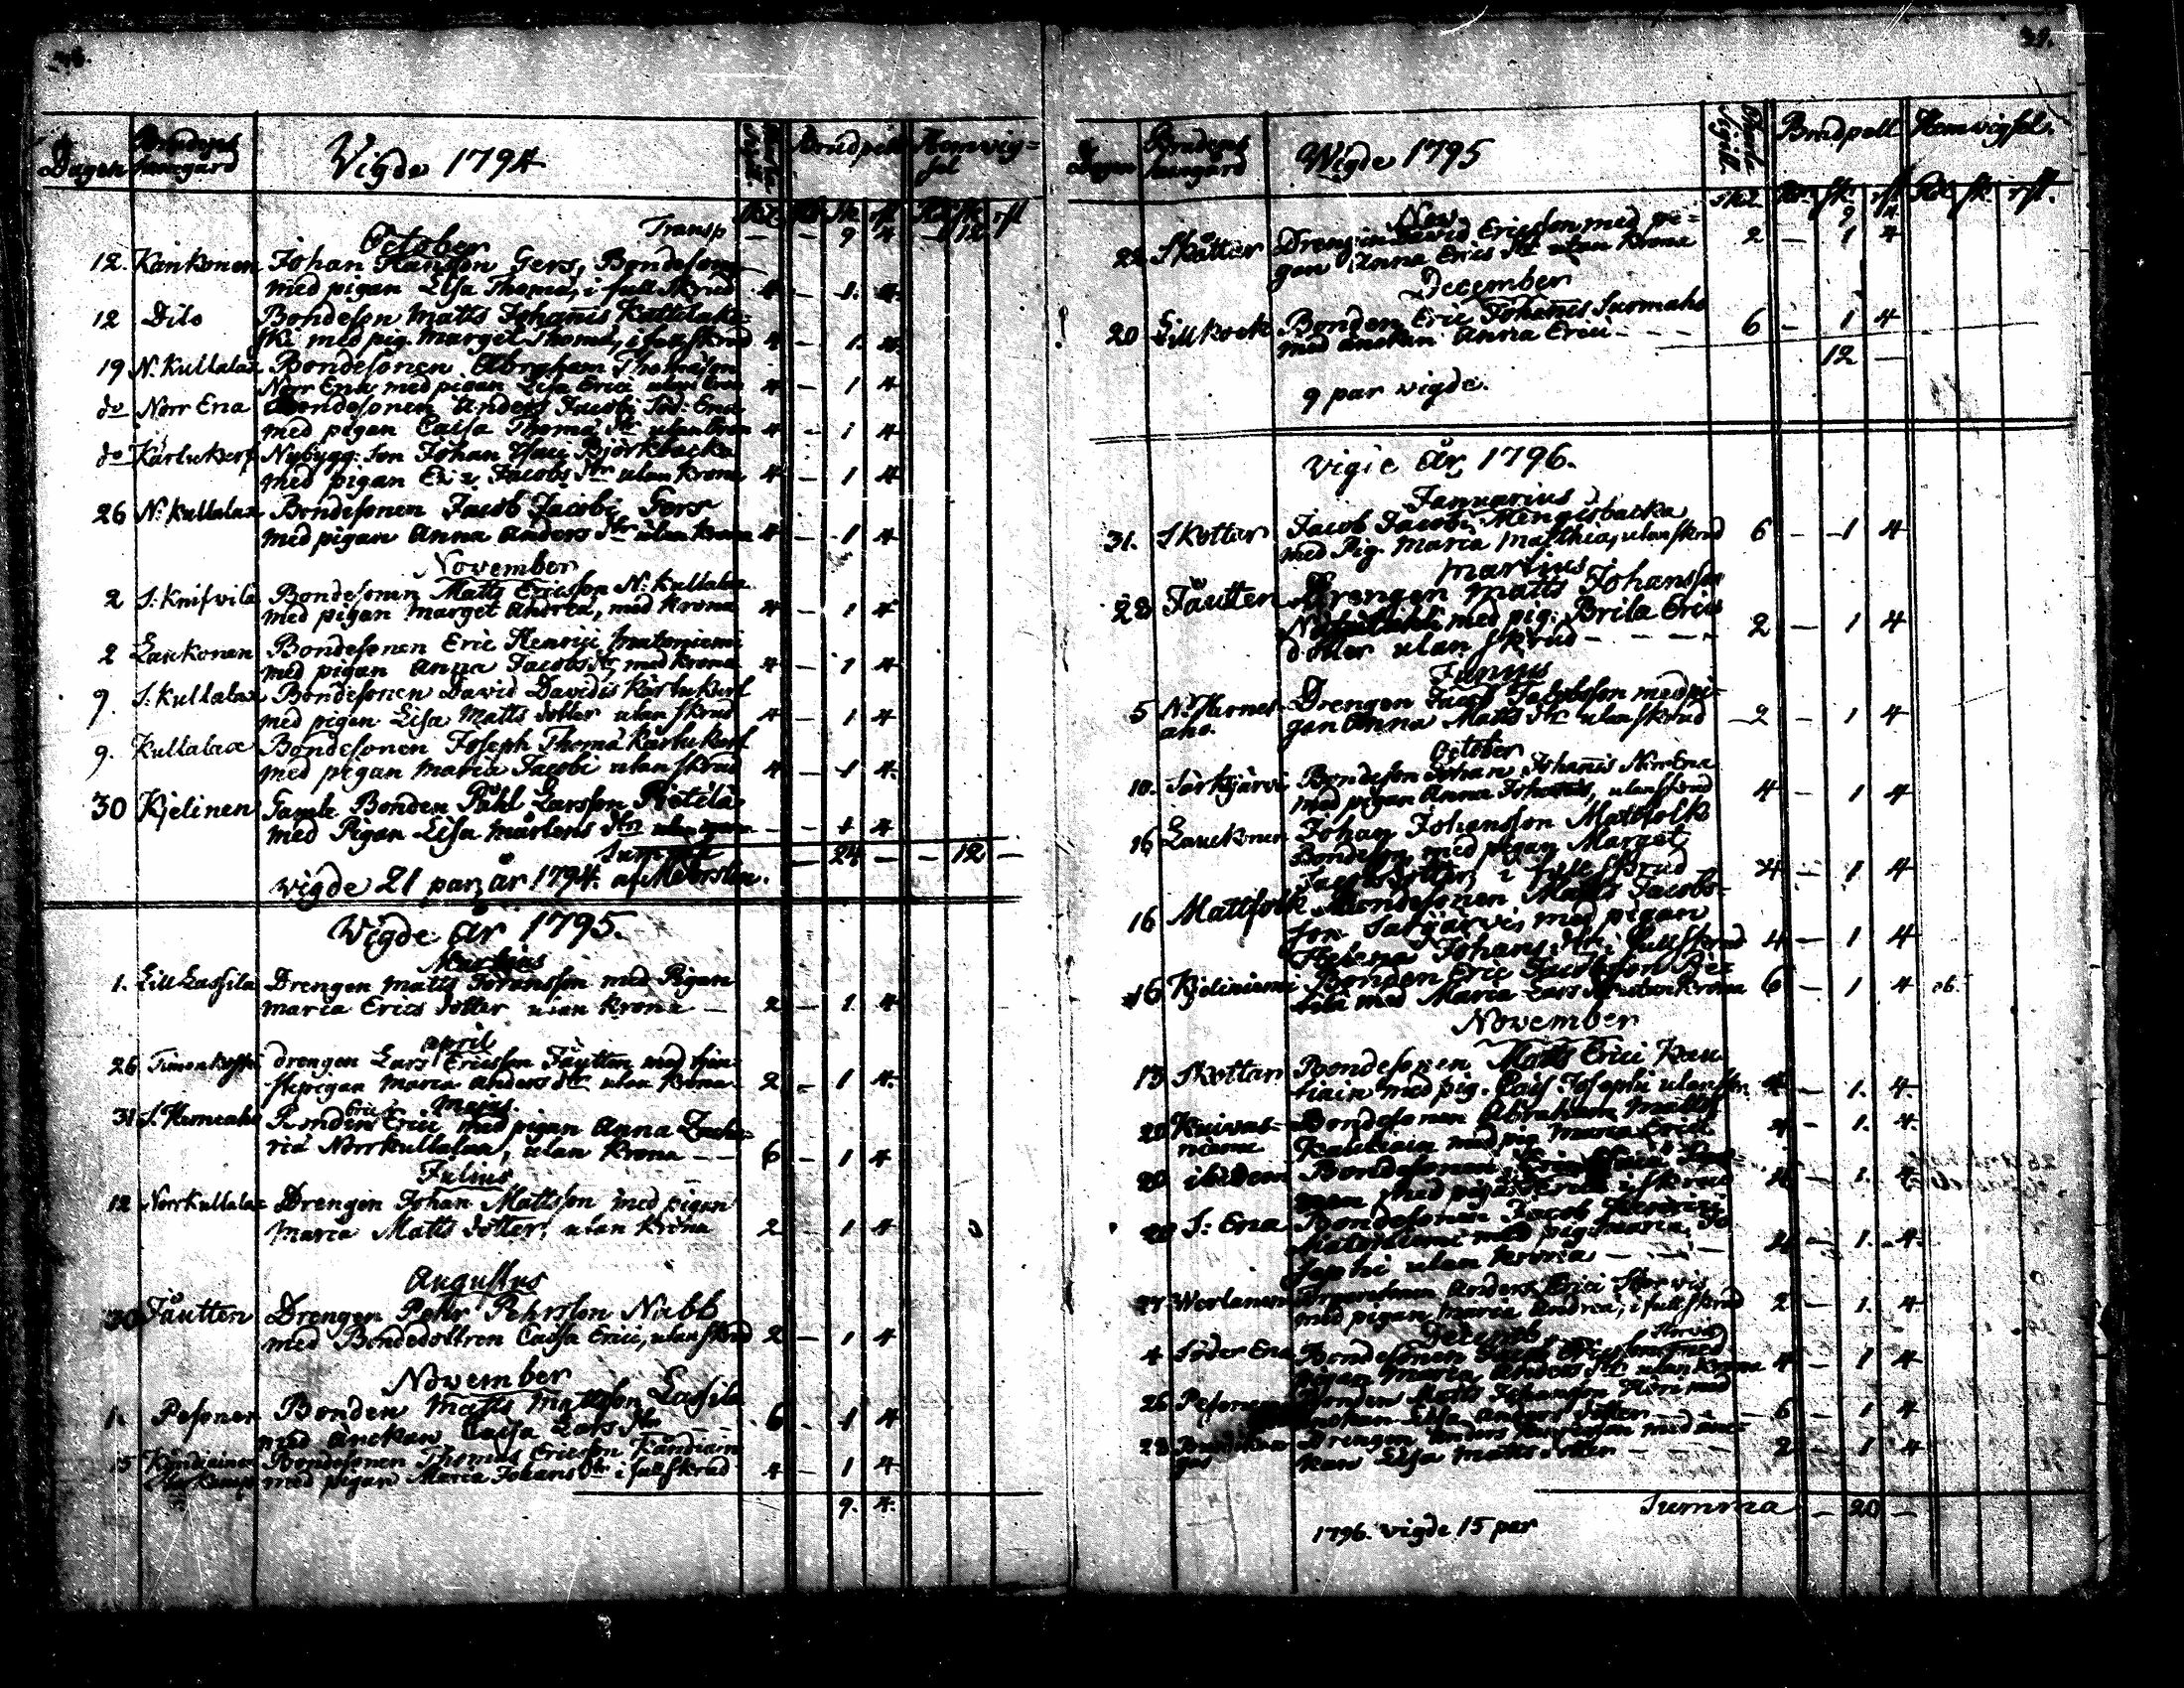 Dagen Brudens hemgård Vigde 1794 Brudpell Hemvig=
sel
Transp — 9 4 — 12
October
12. Kankonen Johan Hansson Gers, Bondeson
med pigan Lisa Thomæ, i full skrud 4 — 1. 4.
12 Dito Bondeson Matts Johannis Kattilako=
ski med pig. Marget Thomæ, i full skrud 4 — 1. 4.
19 N. Kullalax Bondesonen Abraham Thomasson
Norr Ena med pigan Lisa Erici utan 4 — 1 4
do Norr Ena Bondesonen Anders Jacobi Söd: Ena
med pigan Caisa Thomæ dtr utan 4 — 1 4
do Kårtukorf Nybygg: son Johan Isaci Björkbacka
med pigan Jacobs dtr utan krona 4 — 1 4
26 N. Kullalax Bondesonen Jacob Jacobi Gers
med pigan Anna Anders dtr utan krona 4 — 1 4
November
2 S: Knifvila Bondesonen Matts Ericsson N: Kullalax
med pigan Marget Andreæ, med krona 4 — 1 4
2 Laukonen Bondesonen Eric Henrici Matomiemi
med pigan Anna Jacobs dtr med krona 4 — 1 4
9. S. Kullalax Bondesonen David Davidis Kårtukorf
med pigan Lisa Matts dotter utan skrud 4 — 1 4
9. Kullalax Bondesonen Joseph Thomæ Kårtukorf
med pigan Maria Jacobi utan skrud 4 — 1 4.
30 Kjelinen Gamle Bonden Påhl Larsson Pietilä
med Pigan Lisa Mårtens dtr — — 1 4
Summa — 24 — — 12 —
vigde 21 par år 1794.
Vigde år 1795.
Martius
1. Lill Lassila Drengen Matts Göransson med Pigan
Maria Erics dotter utan krona — 2 — 1. 4
April
26 Timonkoski drengen Lars Ericsson Jäutten med tjen=
stepigan Maria Anders dtr utan krona 2 — 1 4.
Majus.
31 Bonden Eric Erici med pigan Anna Zacha=
riæ Norrkullalax, utan krona — — 6 — 1 4
Julius
12 Norrkullalax Drengen Johan Mattsson med pigan
Maria Matts dotter, utan krona 2 — 1 4
Augustus
30 Jäutten Drengen Pehr Pehrsson Nabb
med Bondedottren Caisa Erici, utan skrud 2 — 1 4
November
1. Pesonen Bonden Matts Mattsson Lassila
med änckan Caisa Lars dtr 6 — 1 4
15 Kändiainen Bondesonen Thomas Ericsson Kändiain
med pigan Maria Johans dtr i full skrud 4 — 1 4
9. 4.
29.
Dagen Brudens hemgård Wigde 1795 Charta Sigill. Brudpell Hemvigsel.
9 4
Nov
22 Skåttar Drengen David Ericsson med pi=
gan Anna Erics dtr utan krona 2 — 1 4
December
20 Lillkock Bonden Eric Johannis Surmaho
med änckan Anna Erici — — — 6 — 1 4
12 —
9 par vigde.
Vigde År 1796.
Januarius
31. Skottar Jacob Jacobi Mengesbacka
med Pig. Maria Matthiæ, utan skrud 6 — 1 4
Martius
28 Jäutten Drengen Matts Johansson
med pig. Brita Erics
dotter utan skrud — — — 2 — 1 4
Junius
5 N. Harnes=
aho. Drengen Jacob Jacobsson med pi=
gan Anna Matts dtr utan skrud 2 — 1 4
October
10. Särkjärvi Bondeson Johan Johannis Norr Ena
med pigan Anna Johannis, utan skrud 4 — 1 4
16 Lauckonen Johan Johansson Mattfolk
Bondeson, med pigan Marget
Jacobs dotter, i full skrud 4 — 1 4
16 Mattfolk Bondesonen Matts Jacobs=
son Särkjärvi, med pigan
Helena Johans dtr, i full skrud 4 — 1 4
16 Kjeliniemi Bonden Eric Jacobsson Pie=
tilä med Maria Lars dtr utan krona 6 — 1 4
November
13 Skottar Bondesonen Matts Erici Kau
tiain med pig. Cais Josephi utan skr. 4 — 1. 4.
20 Knivas=
Bondesonen Abraham Matts
med pig Maria Erici 4 — 1. 4.
20 ibidem Bondesonen
med pigan 4 — 1. 4
20 S: Ena Bondesonen Jacob Henrici
Matomiemi med pig Maria Jo
sephi utan krona — — — 4 — 1. 4.
27 Anders Erici Storvis
med pigan Maria Andreæ, i full skrud 2 — 1. 4
Decemb. Storvis
4 Söder Ena Bondesonen Jacob med
pigan Maria Anders dtr utan krona 4 — 1 4
26 Pesonen Bonden Matts Johansson med
änckan Lisa Anders dotter — — — 6 — 1 4
28 Drengen Anders med än=
kan Lisa Matts dotter — — — 2 — 1 4
Summa — 20 —
1796. vigde 15 par